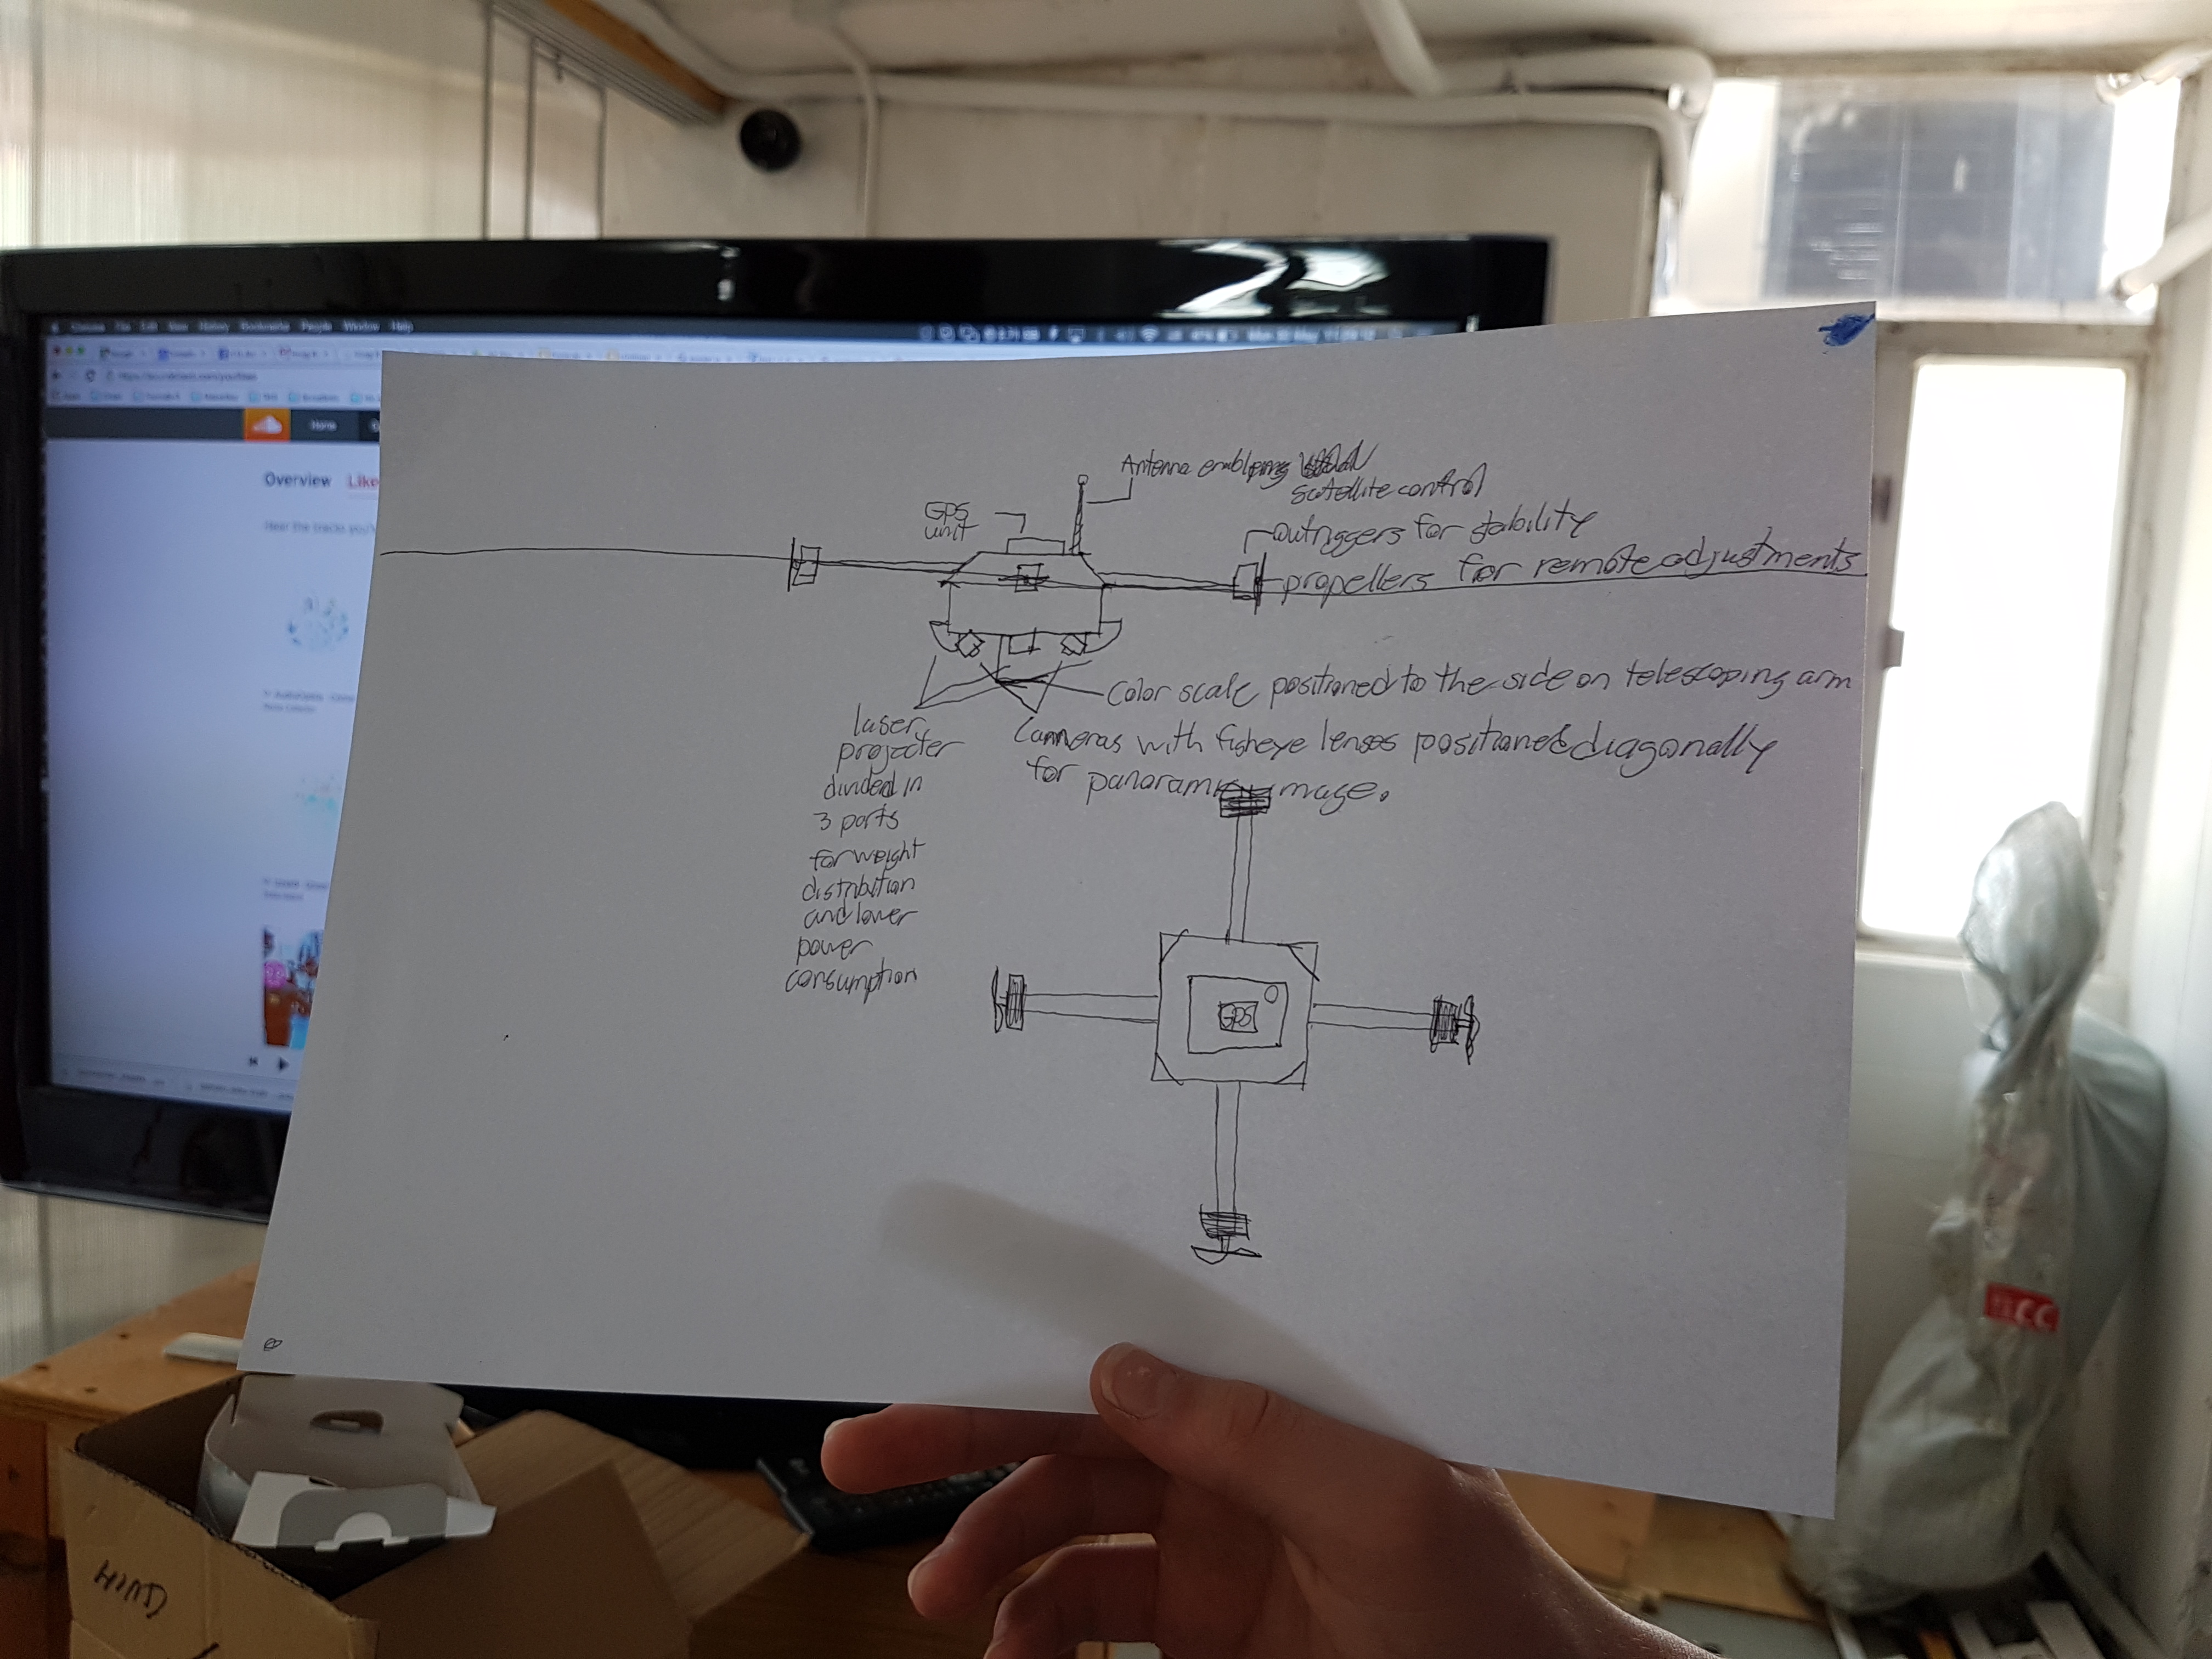 Chrome File Edit View History Bookmarks People Window Help
Home
Overview Like
Antenna enabling
satellite control
GPS
unit
outriggers for stability
propellers for remote adjustments
Color scale positioned to the side on telescoping arm
Cameras with fisheye lenses positioned diagonally
for panoramic image.
laser
projecter
divided in
3 parts
for weight
distribution
and lower
power
consumption
GPS